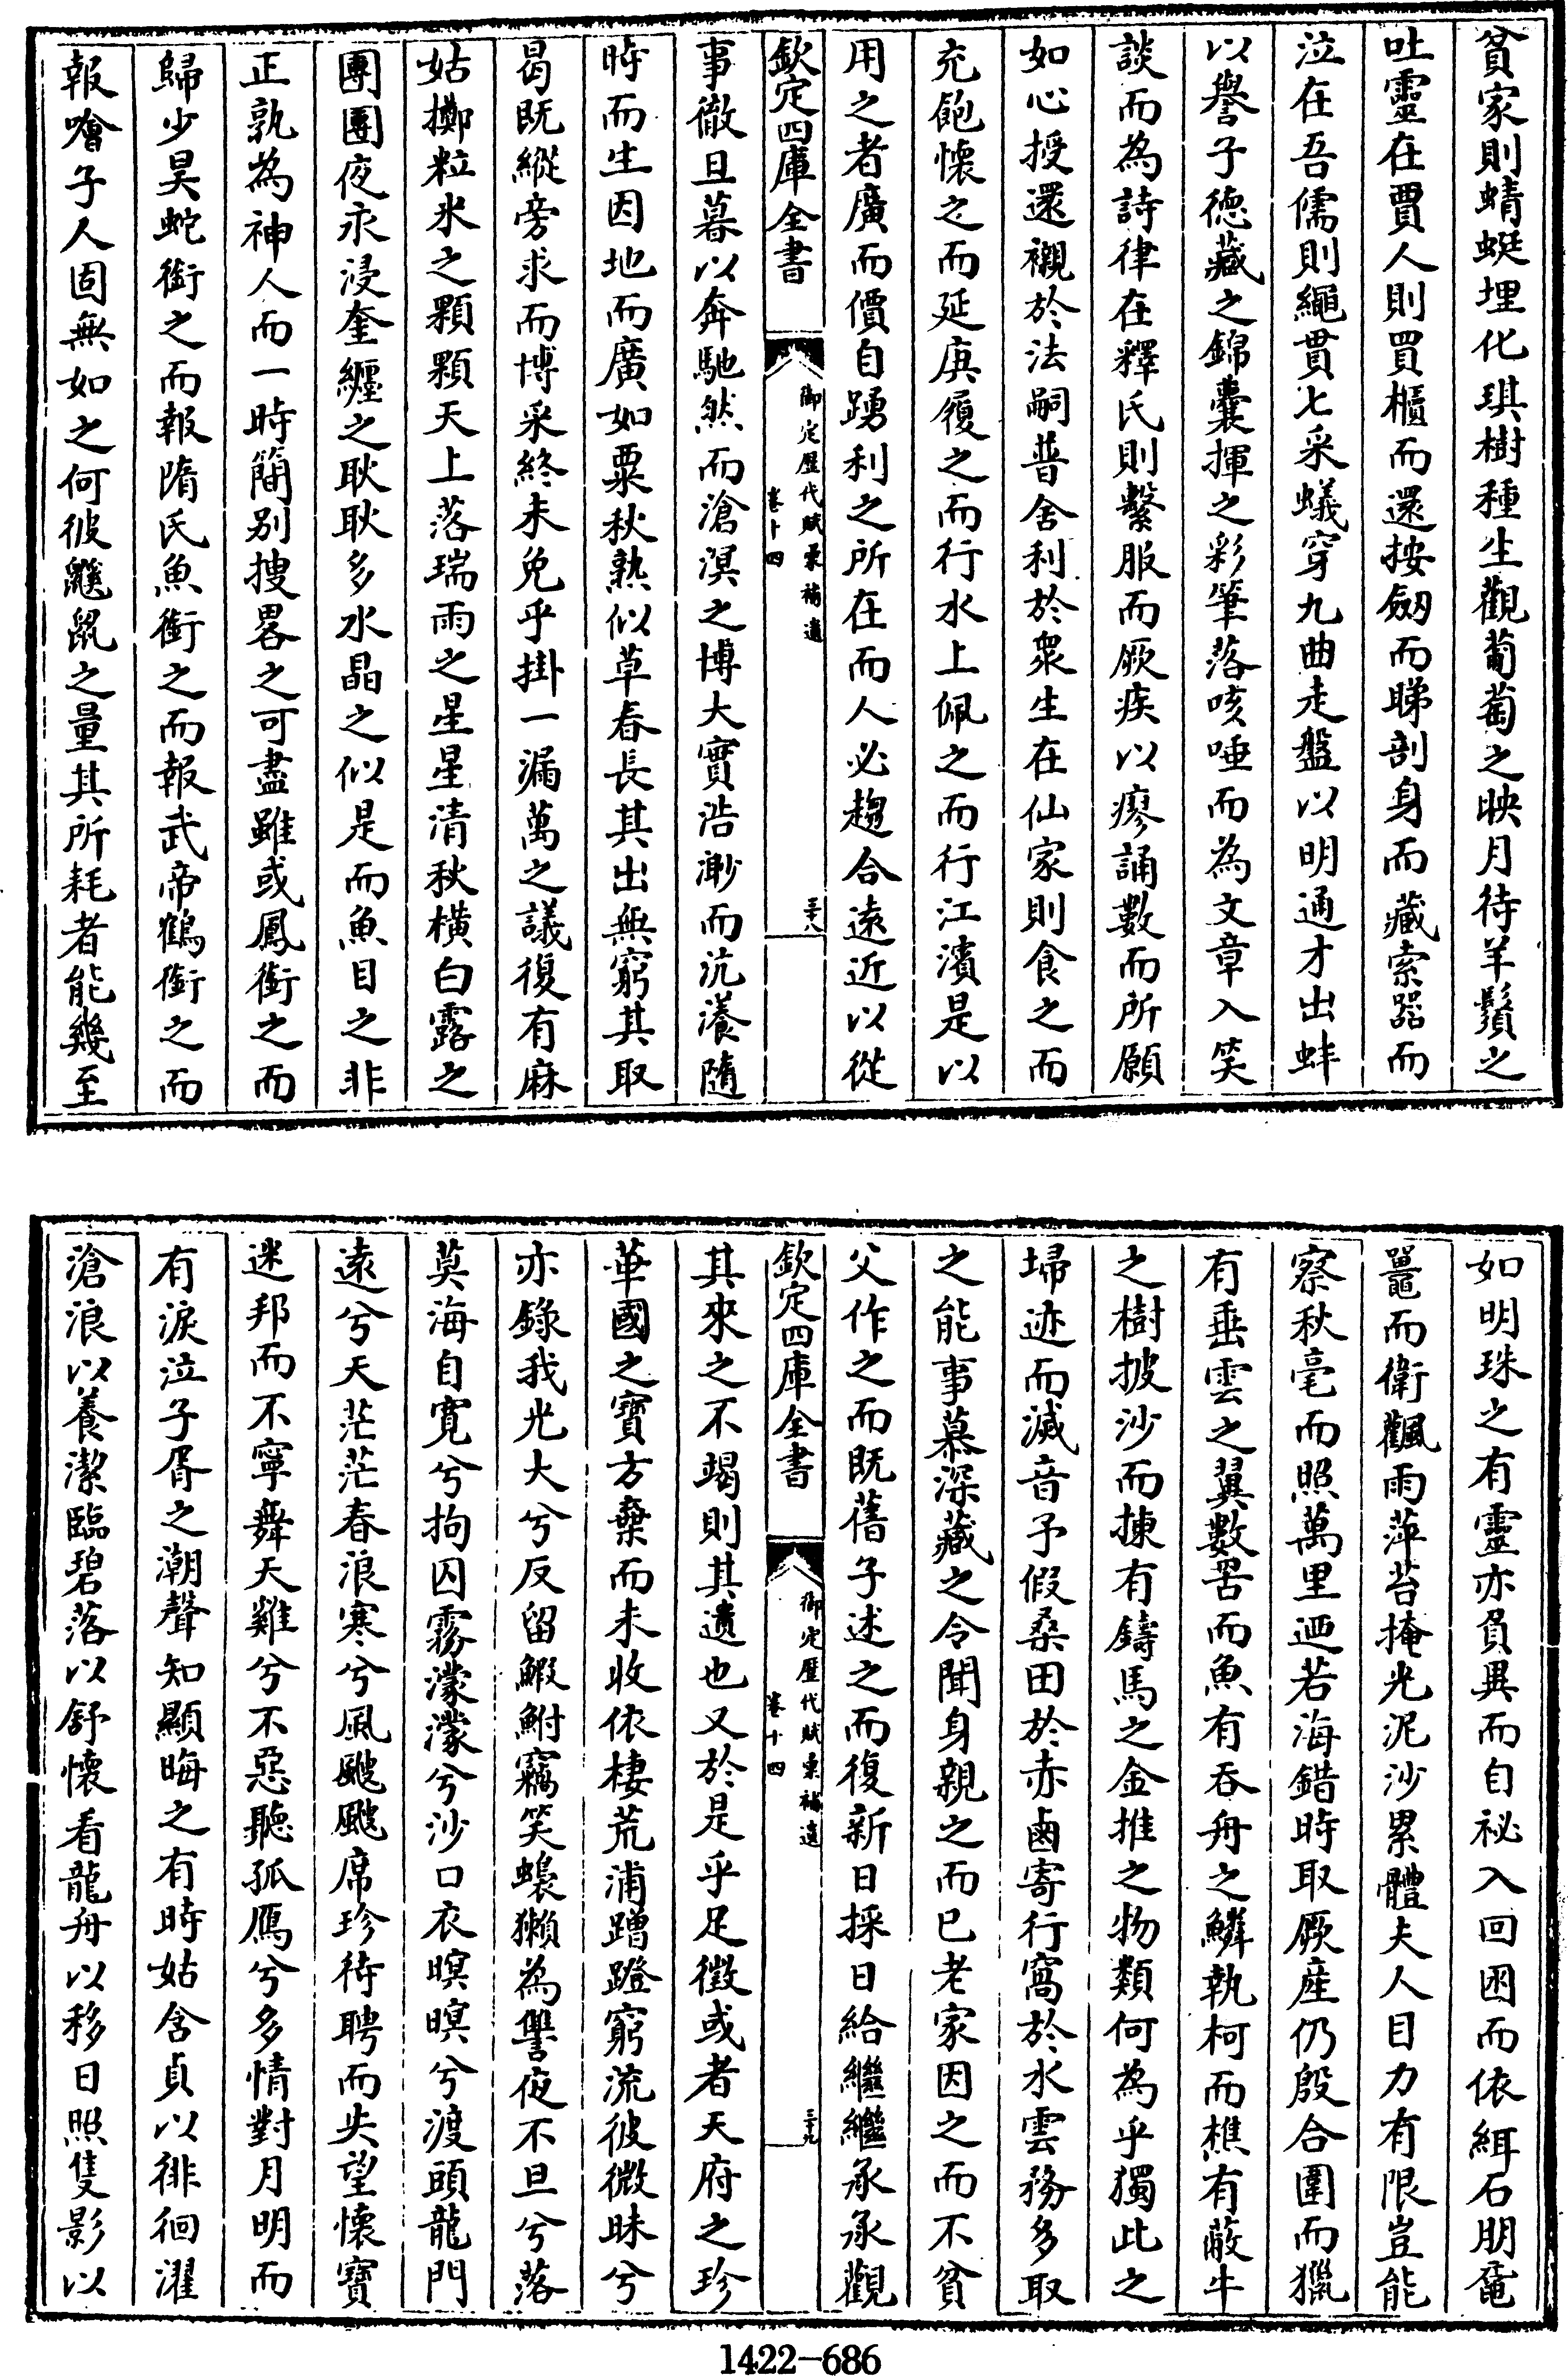 貧家則蜻蜓埋化琪樹種生觀葡萄之映月待羊鬚之
吐靈在賈人則買櫃而還按劒而睇剖身而藏索器而
泣在吾儒則繩貫七采蟻穿九曲走盤以明通才出蚌
以譽子德藏之錦囊揮之彩筆落咳唾而為文章入笑
談而為詩律在釋氏則繫服而厥疾以瘳誦數而所願
如心授還襯於法嗣普舍利於衆生在仙家則食之而
充飽懷之而延庚履之而行水上佩之而行江濱是以
用之者廣而價自踴利之所在而人必趨合遠近以從
欽定四庫全書
御定歷代賦彙補遺
卷十四
三十八
事徹旦暮以奔馳然而滄溟之博大實浩渺而沆瀁隨
時而生因地而廣如粟秋熟似草春長其出無窮其取
曷既縱旁求而博采終未免乎掛一漏萬之議復有麻
姑擲粒米之顆顆天上落瑞雨之星星清秋橫白露之
團團夜永浸奎纏之耿耿多水晶之似是而魚目之非
正孰為神人而一時簡別搜畧之可盡雖或鳳銜之而
歸少昊蛇銜之而報隋氏魚銜之而報武帝鶴銜之而
報噲子人固無如之何彼鼴鼠之量其所耗者能幾至
如明珠之有靈亦負異而自祕入回囦而依緷石朋黿
鼉而衛颿雨萍苔掩光泥沙累體夫人目力有限豈能
察秋毫而照萬里迺若海錯時取厥産仍殷合圍而獵
有垂雲之翼數罟而魚有吞舟之鱗執柯而樵有蔽牛
之樹披沙而揀有鑄馬之金推之物類何為乎獨此之
埽迹而滅音予假桑田於赤鹵寄行窩於水雲務多取
之能事慕深藏之令聞身親之而已老家因之而不貧
父作之而既舊子述之而復新日採日給繼繼承承觀
欽定四庫全書
御定歷代賦彙補遺
卷十四
三十九
其來之不竭則其遺也又於是乎足徵或者天府之珍
華國之寶方棄而未收依棲荒浦蹭蹬窮流彼微昧兮
亦錄我光大兮反留鰕鮒竊笑蠑獺為讐夜不旦兮落
莫海自寬兮拘囚霧濛濛兮沙口衣暝暝兮渡頭龍門
遠兮天茫茫春浪寒兮風颼颼席珍待聘而失望懷寶
迷邦而不寧舞天雞兮不惡聽孤鴈兮多情對月明而
有淚泣子胥之潮聲知顯晦之有時姑含貞以徘徊濯
滄浪以養潔臨碧落以舒懷看龍舟以移日照隻影以
1422-686